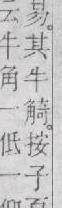 易。其牛觭。按子夏
云牛角一低一仰